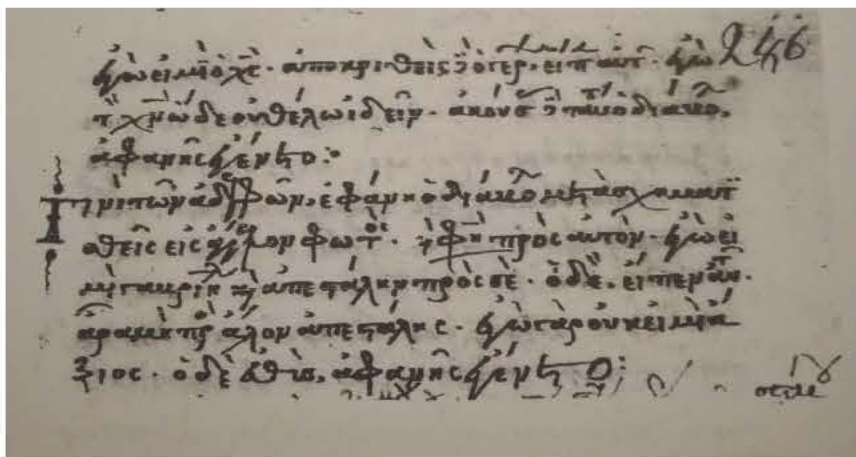 ἐγώ εἰμι ὁ χς· ἀποκριθεὶς ὁ γέρ, εἶπ αὐτ· ἐγὼ 246
τ χν ὧδε οὐ θέλω ἰδεῖν· ἀκούσ τοῦτο ὁ διάβο,
ἀφανὴς ἐγένετο:
Τινὶ τῶν ἀδελφῶν, ἐφάνη ὁ διάβο μετασχηματι
σθεὶς εἰς ἄγγελον φωτὸς· καὶ φη πρὸς αὐτὸν· ἐγώ εἰ
μι γαυριὴλ καὶ ἀπεστάλην πρὸς σὲ· ὁ δὲ, εἶπεν αὐτ·
ὅρα μὴ πρ ἄλλον ἀπεστάλης· ἐγὼ γὰρ οὐκ εἰμὶ ἄ
ξιος· ὁ δὲ εὐθὺς, ἀφανὴς ἐγένετο: